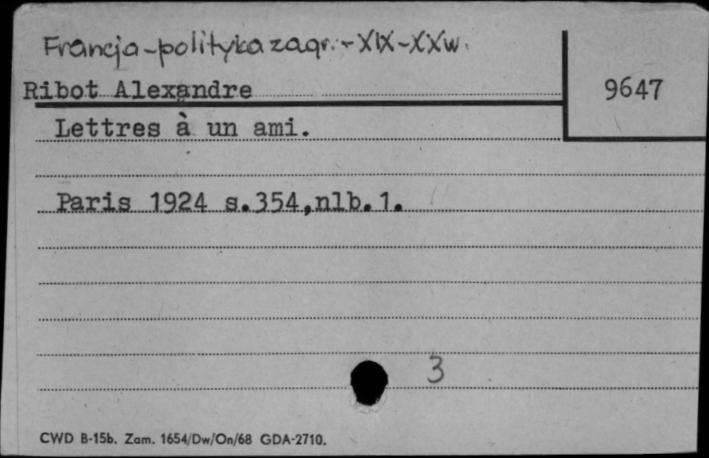 Francja-polityka zagr.-XIX-XXw.
Ribot Alexandre
9647
Lettres à un ami.
Paris 1924 s.354,nlb.1.
3
CWD B-15b. Zam. 1654/Dw/On/68 GDA-2710.